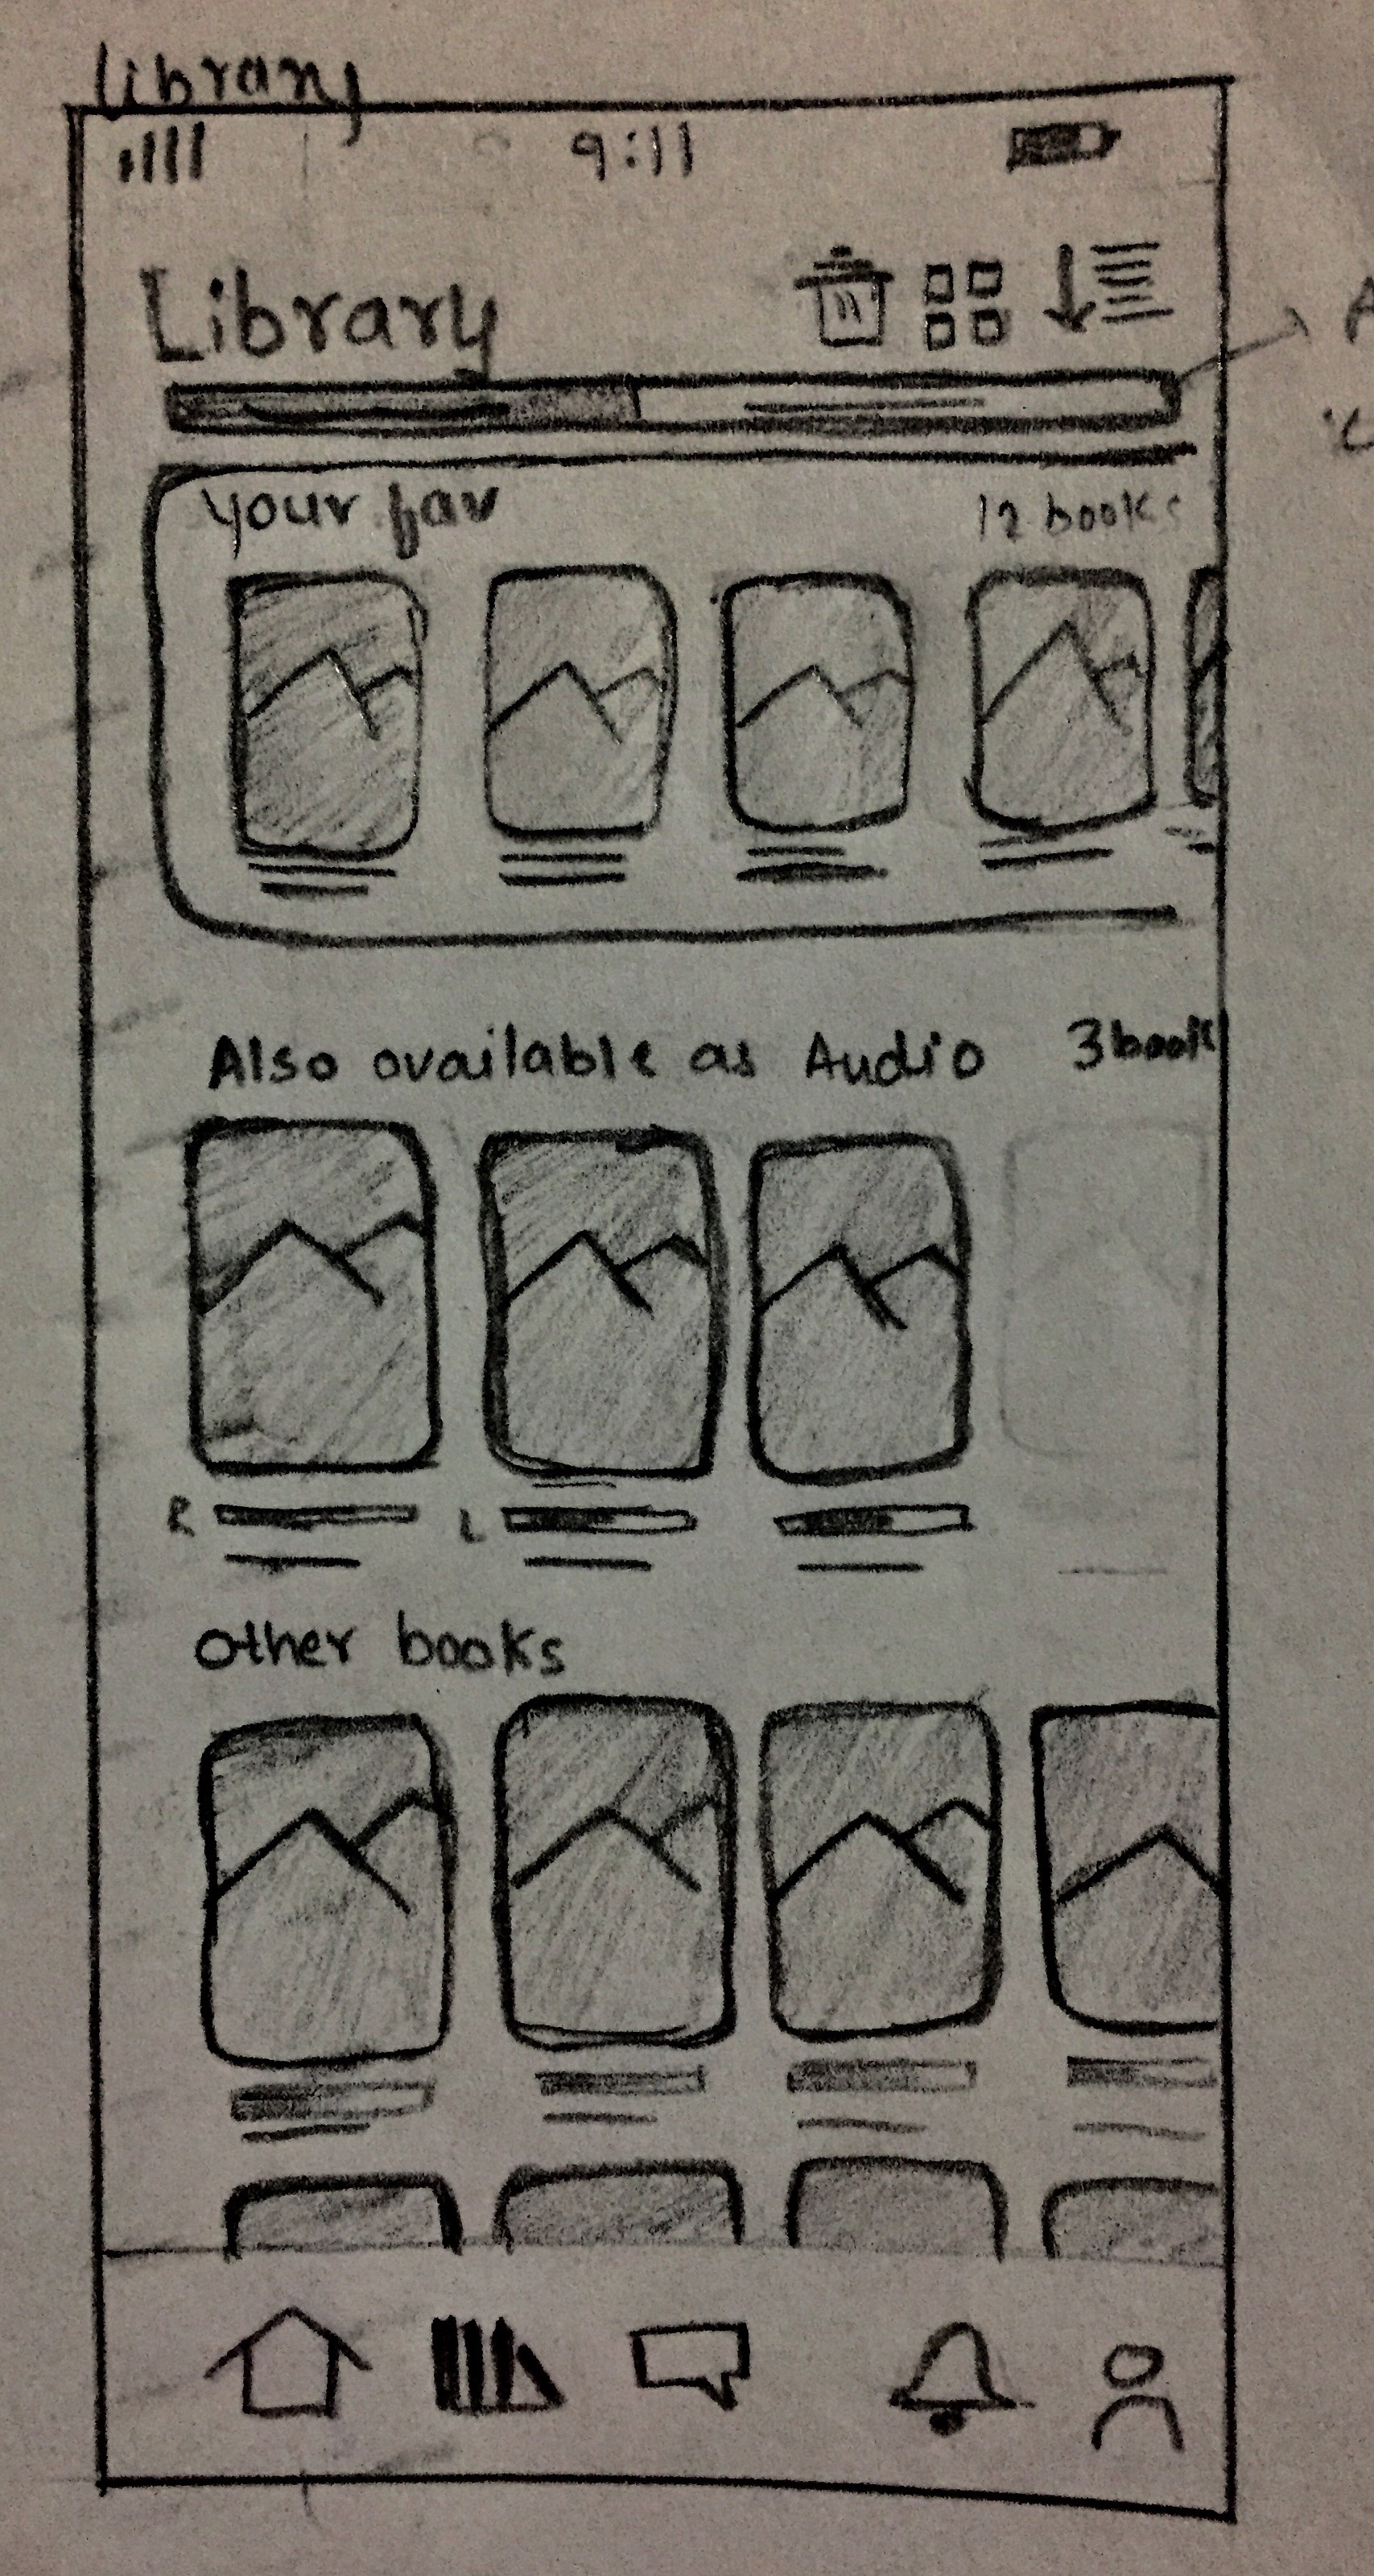 library
9:11
Library
A
your fav 12 books
Also available as Audio 3 book
R L
other books